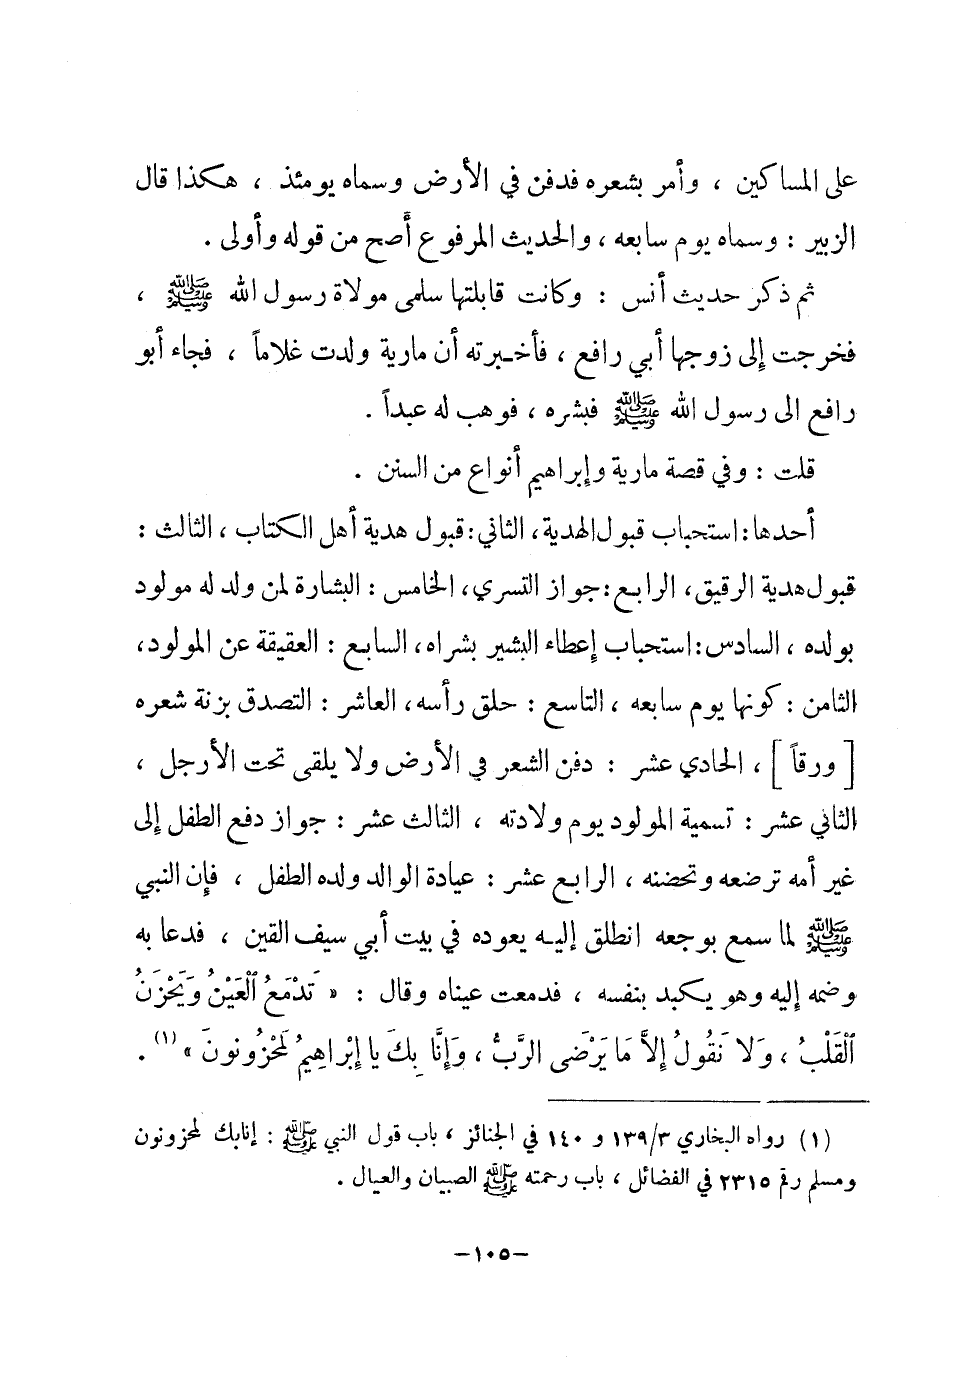 على المساكين ، وأمر بشعره فدفن في الأرض وسماه يومئذ ، هكذا قال
الزبير : وسماه يوم سابعه ، والحديث المرفوع أصح من قوله وأولى .
ثم ذكر حديث أنس : وكانت قابلتها سلمى مولاة رسول الله ﷺ ،
فخرجت إلى زوجها أبي رافع ، فأخبرته أن مارية ولدت غلاماً ، فجاء أبو
رافع الى رسول الله ﷺ فبشره ، فوهب له عبداً .
قلت : وفي قصة مارية وإبراهيم أنواع من السنن .
أحدها : استحباب قبول الهدية ، الثاني : قبول هدية أهل الكتاب ، الثالث :
قبول هدية الرقيق ، الرابع : جواز التسري ، الخامس : البشارة لمن ولد له مولود
بولده ، السادس : استحباب إعطاء البشير بشراه ، السابع : العقيقة عن المولود ،
الثامن : كونها يوم سابعه ، التاسع : حلق رأسه ، العاشر : التصدق بزنة شعره
[ ورقاً ] ، الحادي عشر : دفن الشعر في الأرض ولا يلقى تحت الأرجل ،
الثاني عشر : تسمية المولود يوم ولادته ، الثالث عشر : جواز دفع الطفل إلى
غير أمه ترضعه وتحضنه ، الرابع عشر : عيادة الوالد ولده الطفل ، فإن النبي
ﷺ لما سمع بوجعه انطلق إليه يعوده في بيت أبي سيف القين ، فدعا به
وضمه إليه وهو يكيد بنفسه ، فدمعت عيناه وقال : « تَدْمَعُ ٱلْعَيْنُ وَيَحْزَنُ
ٱلْقَلْبُ ، وَلا نَقُولُ إِلاَّ مَا يَرْضَى الرَّبُّ ، وَإِنَّا بِكَ يا إِبْراهِيمُ لَمَحْزُونونَ » (١) .
(١) رواه البخاري ١٣٩/٣ و ١٤٠ في الجنائز ، باب قول النبي ﷺ : إنابك لمحزونون
ومسلم رقم ٢٣١٥ في الفضائل ، باب رحمته ﷺ الصبيان والعيال .
-١٠٥-